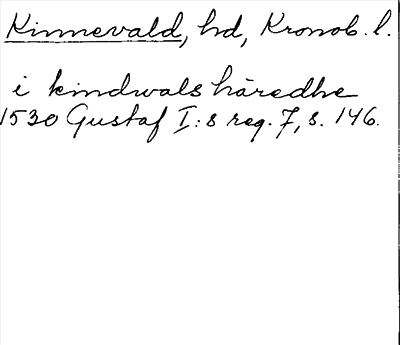 Kinnevald, hd, Kronob. l.
i kindwals häredhe
1530 Gustaf I:s reg. 7, s. 146.